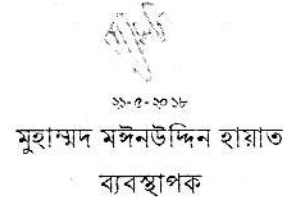 ২১-৫-২০১৮
মুহাম্মদ মঈনউদ্দিন হায়াত
ব্যবস্থাপক